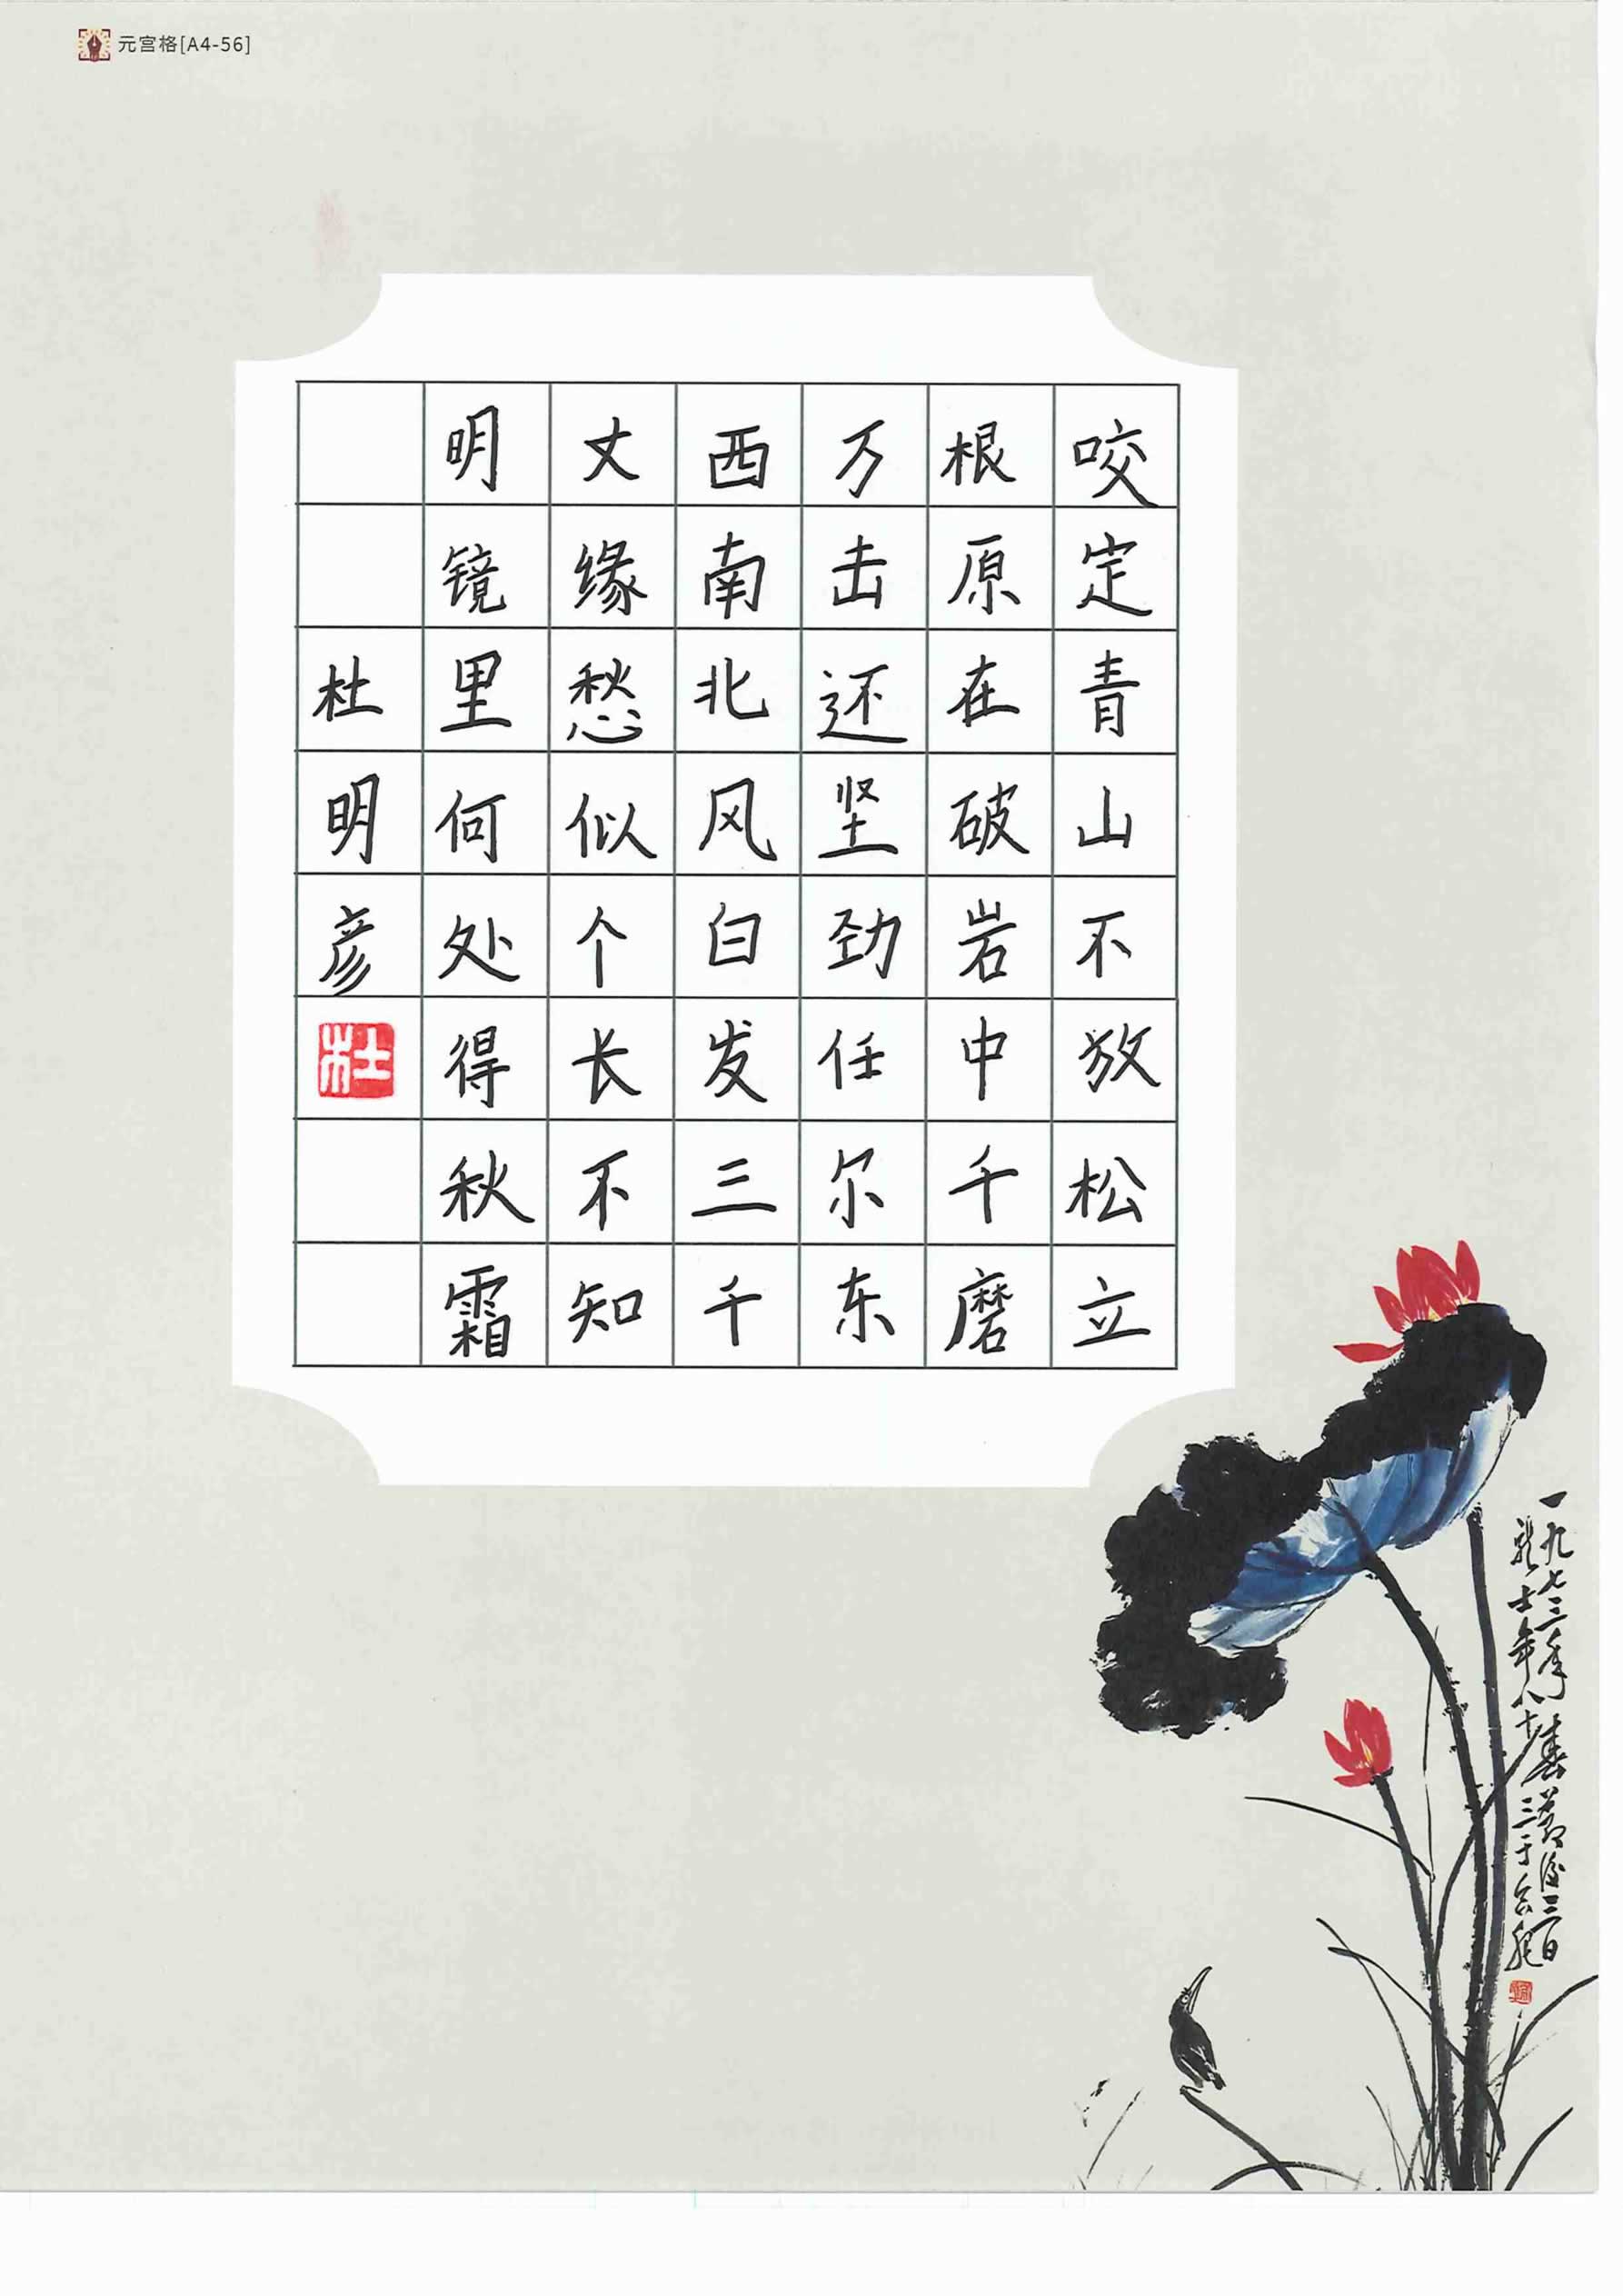 元宫格[A4-56]
咬定青山不放松立
根原在破岩中千磨
万击还坚劲任尔东
西南北风白发三千
丈缘愁似个长不知
明镜里何处得秋霜
杜明彦
杜
一九七三年春节后三百
龙士年八十三于合肥